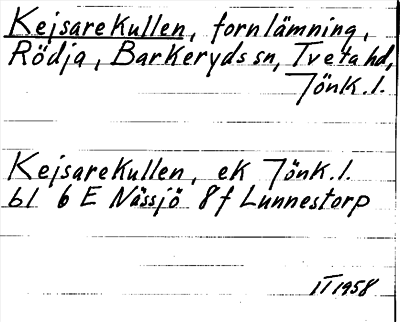 Kejsarekullen, fornlämning,
Rödja, Barkeryds sn, Tveta hd,
Jönk.l.
Kejsarekullen, ek Jönk.l.
bl 6 E Nässjö 8f Lunnestorp
II 1958